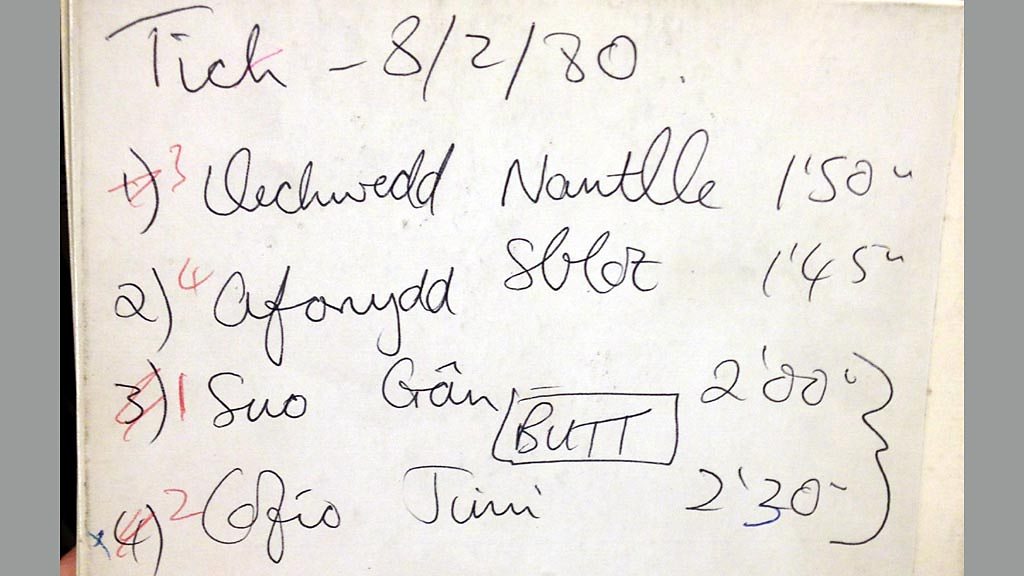 Tich - 8/2/80.
1) 3 Llechwedd Nantlle 1'50"
2) 4 Afonydd 1'45"
3) 1 Suo Gân BUTT 2'00"
4) 2 Cofio Jimi 2'30"